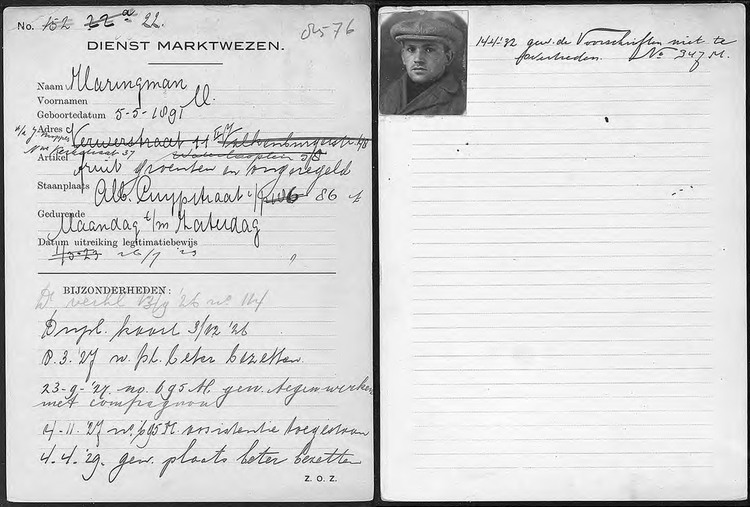 No. 152 22a 22.
8576
DIENST MARKTWEZEN.
Naam Maringman
Voornamen M.
Geboortedatum 5-5-1891
Adres Verwerstraat 11 Valkenburgerstr.
Nwe Kerkstraat 37 Waterlooplein
Artikel fruit groenten en ongeregeld
Staanplaats Alb. Cuypstraat 86
Gedurende Maandag t/m Zaterdag
Datum uitreiking legitimatiebewijs
26/7 '23
BIJZONDERHEDEN:
D. verkl 13/9 '26 no 114
Dupl. kaart 3/12 '26
8.3.'27 w. pl. beter bezetten.
23-9-'27. no. 695 M. gew. tegen werken
met compagnon
4-11-'27 no. 695 M. assistentie toegestaan
4.4.'29. gew. plaats beter bezetten
Z. O. Z.
14-4-'32 gew. de Voorschriften niet te
overtreden. No 347 M.